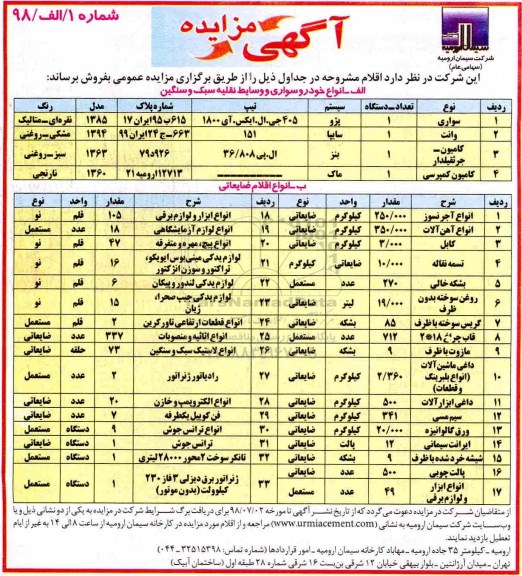 شماره ۱/الف/۹۸
آگهی مزایده
سیمان ارومیه
شرکت سیمان ارومیه
(سهامی عام)
این شرکت در نظر دارد اقلام مشروحه در جداول ذیل را از طریق برگزاری مزایده عمومی بفروش برساند:
الف-انواع خودرو سواری و وسایط نقلیه سبک و سنگین
ردیف نوع تعداد-دستگاه سیستم تیپ شماره پلاک مدل رنگ
۱ سواری ۱ پژو ۴۰۵ جی.ال.ایکس.آی ۱۸۰۰ ۶۱۵ب۹۵ایران۱۷ ۱۳۸۵ نقره‌ای-متالیک
۲ وانت ۱ سایپا ۱۵۱ ۶۶۳-ج۲۴ایران۹۹ ۱۳۹۴ مشکی-روغنی
۳ کامیون-جرثقیلدار ۱ بنز ال.پی ۳۶/۸۰۸ ۹۲۶د۷۹ ۱۳۶۳ سبز-روغنی
۴ کامیون کمپرسی ۱ ماک ۱۲۷۱۳ارومیه۲۱ ۱۳۶۰ نارنجی
ب-انواع اقلام ضایعاتی
ردیف شرح مقدار واحد نوع ردیف شرح مقدار واحد نوع
۱ انواع آجر نسوز ۲۵۰/۰۰۰ کیلوگرم ضایعاتی ۱۸ انواع ابزار و لوازم برقی ۱۰۵ قلم نو
۲ انواع آهن آلات ۳۵۰/۰۰۰ کیلوگرم ضایعاتی ۱۹ انواع لوازم آزمایشگاهی ۱۸ عدد مستعمل
۳ کابل ۳/۰۰۰ کیلوگرم ضایعاتی ۲۰ انواع پیچ، مهره و متفرقه ۴۷ قلم نو
۴ تسمه نقاله ۱۰/۰۰۰ کیلوگرم ضایعاتی ۲۱ لوازم یدکی مینی بوس ایویکو، تراکتور و سوزن انژکتور ۱۶ قلم نو
۵ بشکه خالی ۲۷۰ عدد مستعمل ۲۲ لوازم یدکی لندور و پیکان ۶ قلم نو
۶ روغن سوخته بدون ظرف ۱۹/۰۰۰ لیتر ضایعاتی ۲۳ لوازم یدکی جیپ صحرا، ژیان ۱۵ قلم نو
۷ گریس سوخته با ظرف ۸۵ بشکه ضایعاتی ۲۴ انواع قطعات ارتفاعی تاور کرین ۲ قلم مستعمل
۸ قاب چراغ ۱۸*۲ ۷۱۲ عدد مستعمل ۲۵ انواع اثاثیه و منصوبات ۳۳۷ عدد ضایعاتی
۹ مازوت با ظرف ۹ بشکه ضایعاتی ۲۶ انواع لاستیک سبک و سنگین ۷۳ حلقه ضایعاتی
۱۰ داغی ماشین آلات (انواع بلبرینگ و قطعات) ۲/۳۶۰ کیلوگرم ضایعاتی ۲۷ رادیاتور ژنراتور ۲ عدد مستعمل
۱۱ داغی ابزار آلات ۵۰۰ کیلوگرم ضایعاتی ۲۸ انواع الکتروپمپ و خازن ۲۰ عدد ضایعاتی
۱۲ سیم مسی ۳۴۱ کیلوگرم ضایعاتی ۲۹ فن کویل یکطرفه ۷ عدد ضایعاتی
۱۳ ورق گالوانیزه ۲۰/۰۰۰ کیلوگرم ضایعاتی ۳۰ انواع ترانس جوش ۹ دستگاه مستعمل
۱۴ ایرانت سیمانی ۱۲ پالت ضایعاتی ۳۱ ترانس جوش ۱ دستگاه ضایعاتی
۱۵ شیشه خرد شده با ظرف ۹ بشکه ضایعاتی ۳۲ تانکر سوخت ۲ محور ۲۸۰۰۰ لیتری ۱ دستگاه مستعمل
۱۶ پالت چوبی ۵۰۰ عدد ضایعاتی ۳۳ ژنراتور برق دیزلی ۳ فاز ۲۳۰ کیلوولت (بدون موتور) ۱ دستگاه مستعمل
۱۷ انواع ابزار و لوازم برقی ۴۹ عدد مستعمل
از متقاضیان شرکت در مزایده دعوت می‌گردد که از تاریخ نشر آگهی تا مورخه ۹۸/۰۷/۰۲ برای دریافت برگ شرایط شرکت در مزایده به یکی از دو نشانی ذیل و یا
وب‌سایت شرکت سیمان ارومیه به نشانی (www.urmiacement.com) مراجعه و از اقلام مورد مزایده در کارخانه سیمان ارومیه از ساعت ۸ الی ۱۴ به غیر از ایام
تعطیل بازدید نمایند.
ارومیه - کیلومتر ۳۵ جاده ارومیه - مهاباد کارخانه سیمان ارومیه - امور قراردادها (شماره تماس: ۳۲۲۵۱۳۹۸-۰۴۴)
تهران - میدان آرژانتین - بلوار بیهقی خیابان ۱۲ شرقی بن‌بست ۱۶ شرقی شماره ۲۸ طبقه اول (ساختمان آبیک)